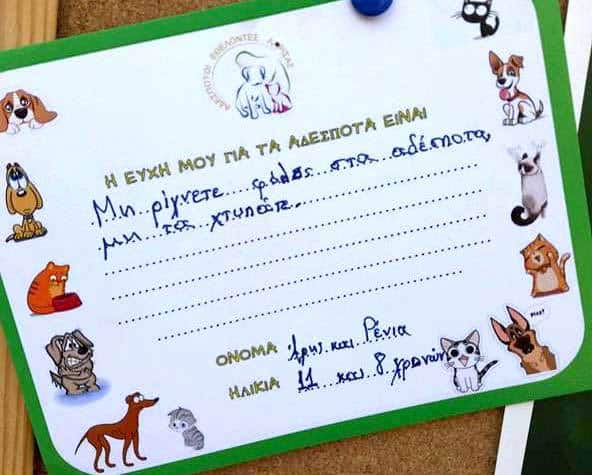 ΑΔΕΣΠΟΤΟΙ ΕΘΕΛΟΝΤΕΣ ΛΑΡΙΣΑΣ
Η ΕΥΧΗ ΜΟΥ ΓΙΑ ΤΑ ΑΔΕΣΠΟΤΑ ΕΙΝΑΙ
Μη ρίχνετε φόλες στα αδέσποτα,
μη τα χτυπάτε.
ΟΝΟΜΑ Άρης και Ρένια
ΗΛΙΚΙΑ 11 και 8 χρονών